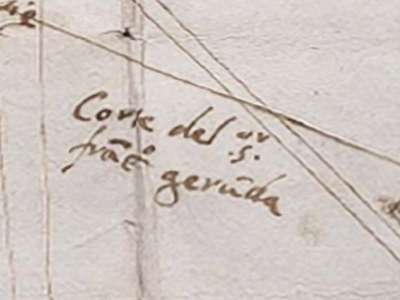 Corte del
frāc̄o gerūda